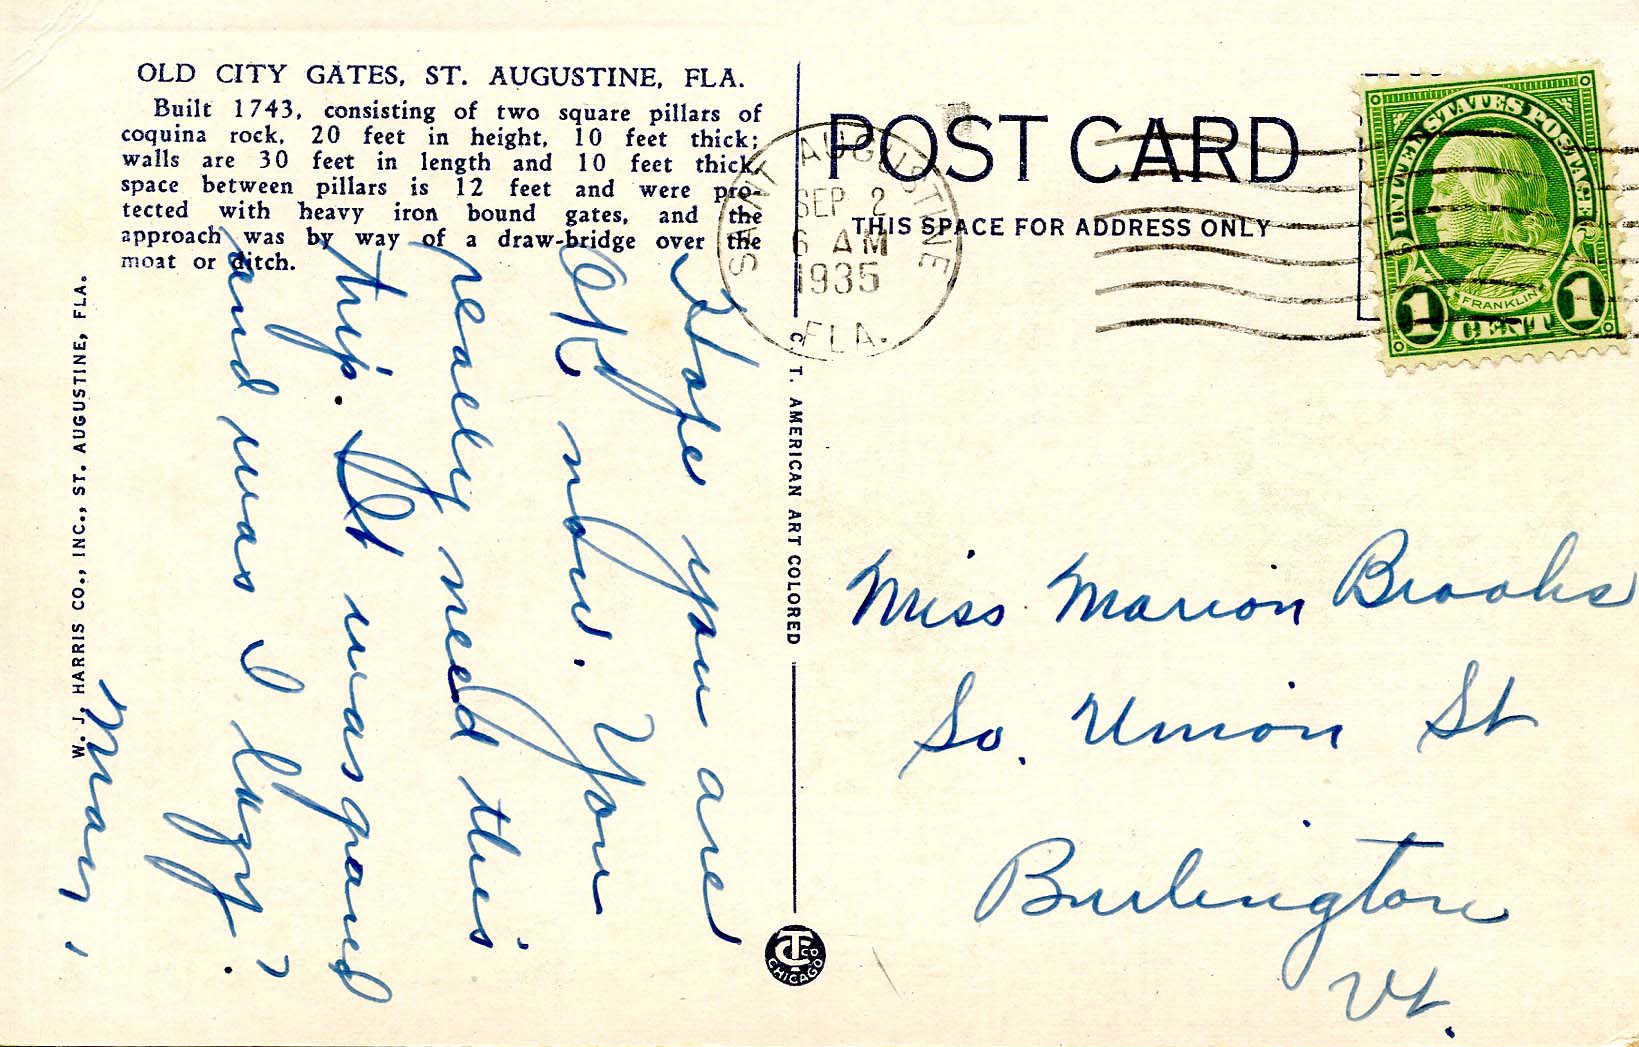 OLD CITY GATES, ST. AUGUSTINE, FLA.
Built 1743, consisting of two square pillars of
coquina rock, 20 feet in height, 10 feet thick;
walls are 30 feet in length and 10 feet thick,
space between pillars is 12 feet and were pro-
tected with heavy iron bound gates, and the
approach was by way of a draw-bridge over the
moat or ditch.
Hope you are
OK now. You
really need this
trip. It was grand
and was I lazy?
Mary
W. J. HARRIS CO., INC., ST. AUGUSTINE, FLA.
C. T. AMERICAN ART COLORED
C T CO
CHICAGO
POST CARD
THIS SPACE FOR ADDRESS ONLY
SAINT AUGUSTINE
SEP 2
6 AM
1935
FLA.
UNITED STATES POSTAGE
FRANKLIN
1 CENT 1
Miss Marion Brooks
So. Union St
Burlington
Vt.